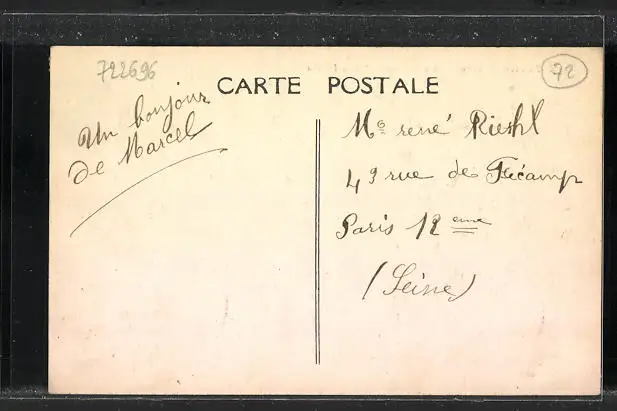 722696
72
CARTE POSTALE
Un bonjour
de Marcel
Mr rené Riehl
49 rue de Fécamp
Paris 12 eme
(Seine)